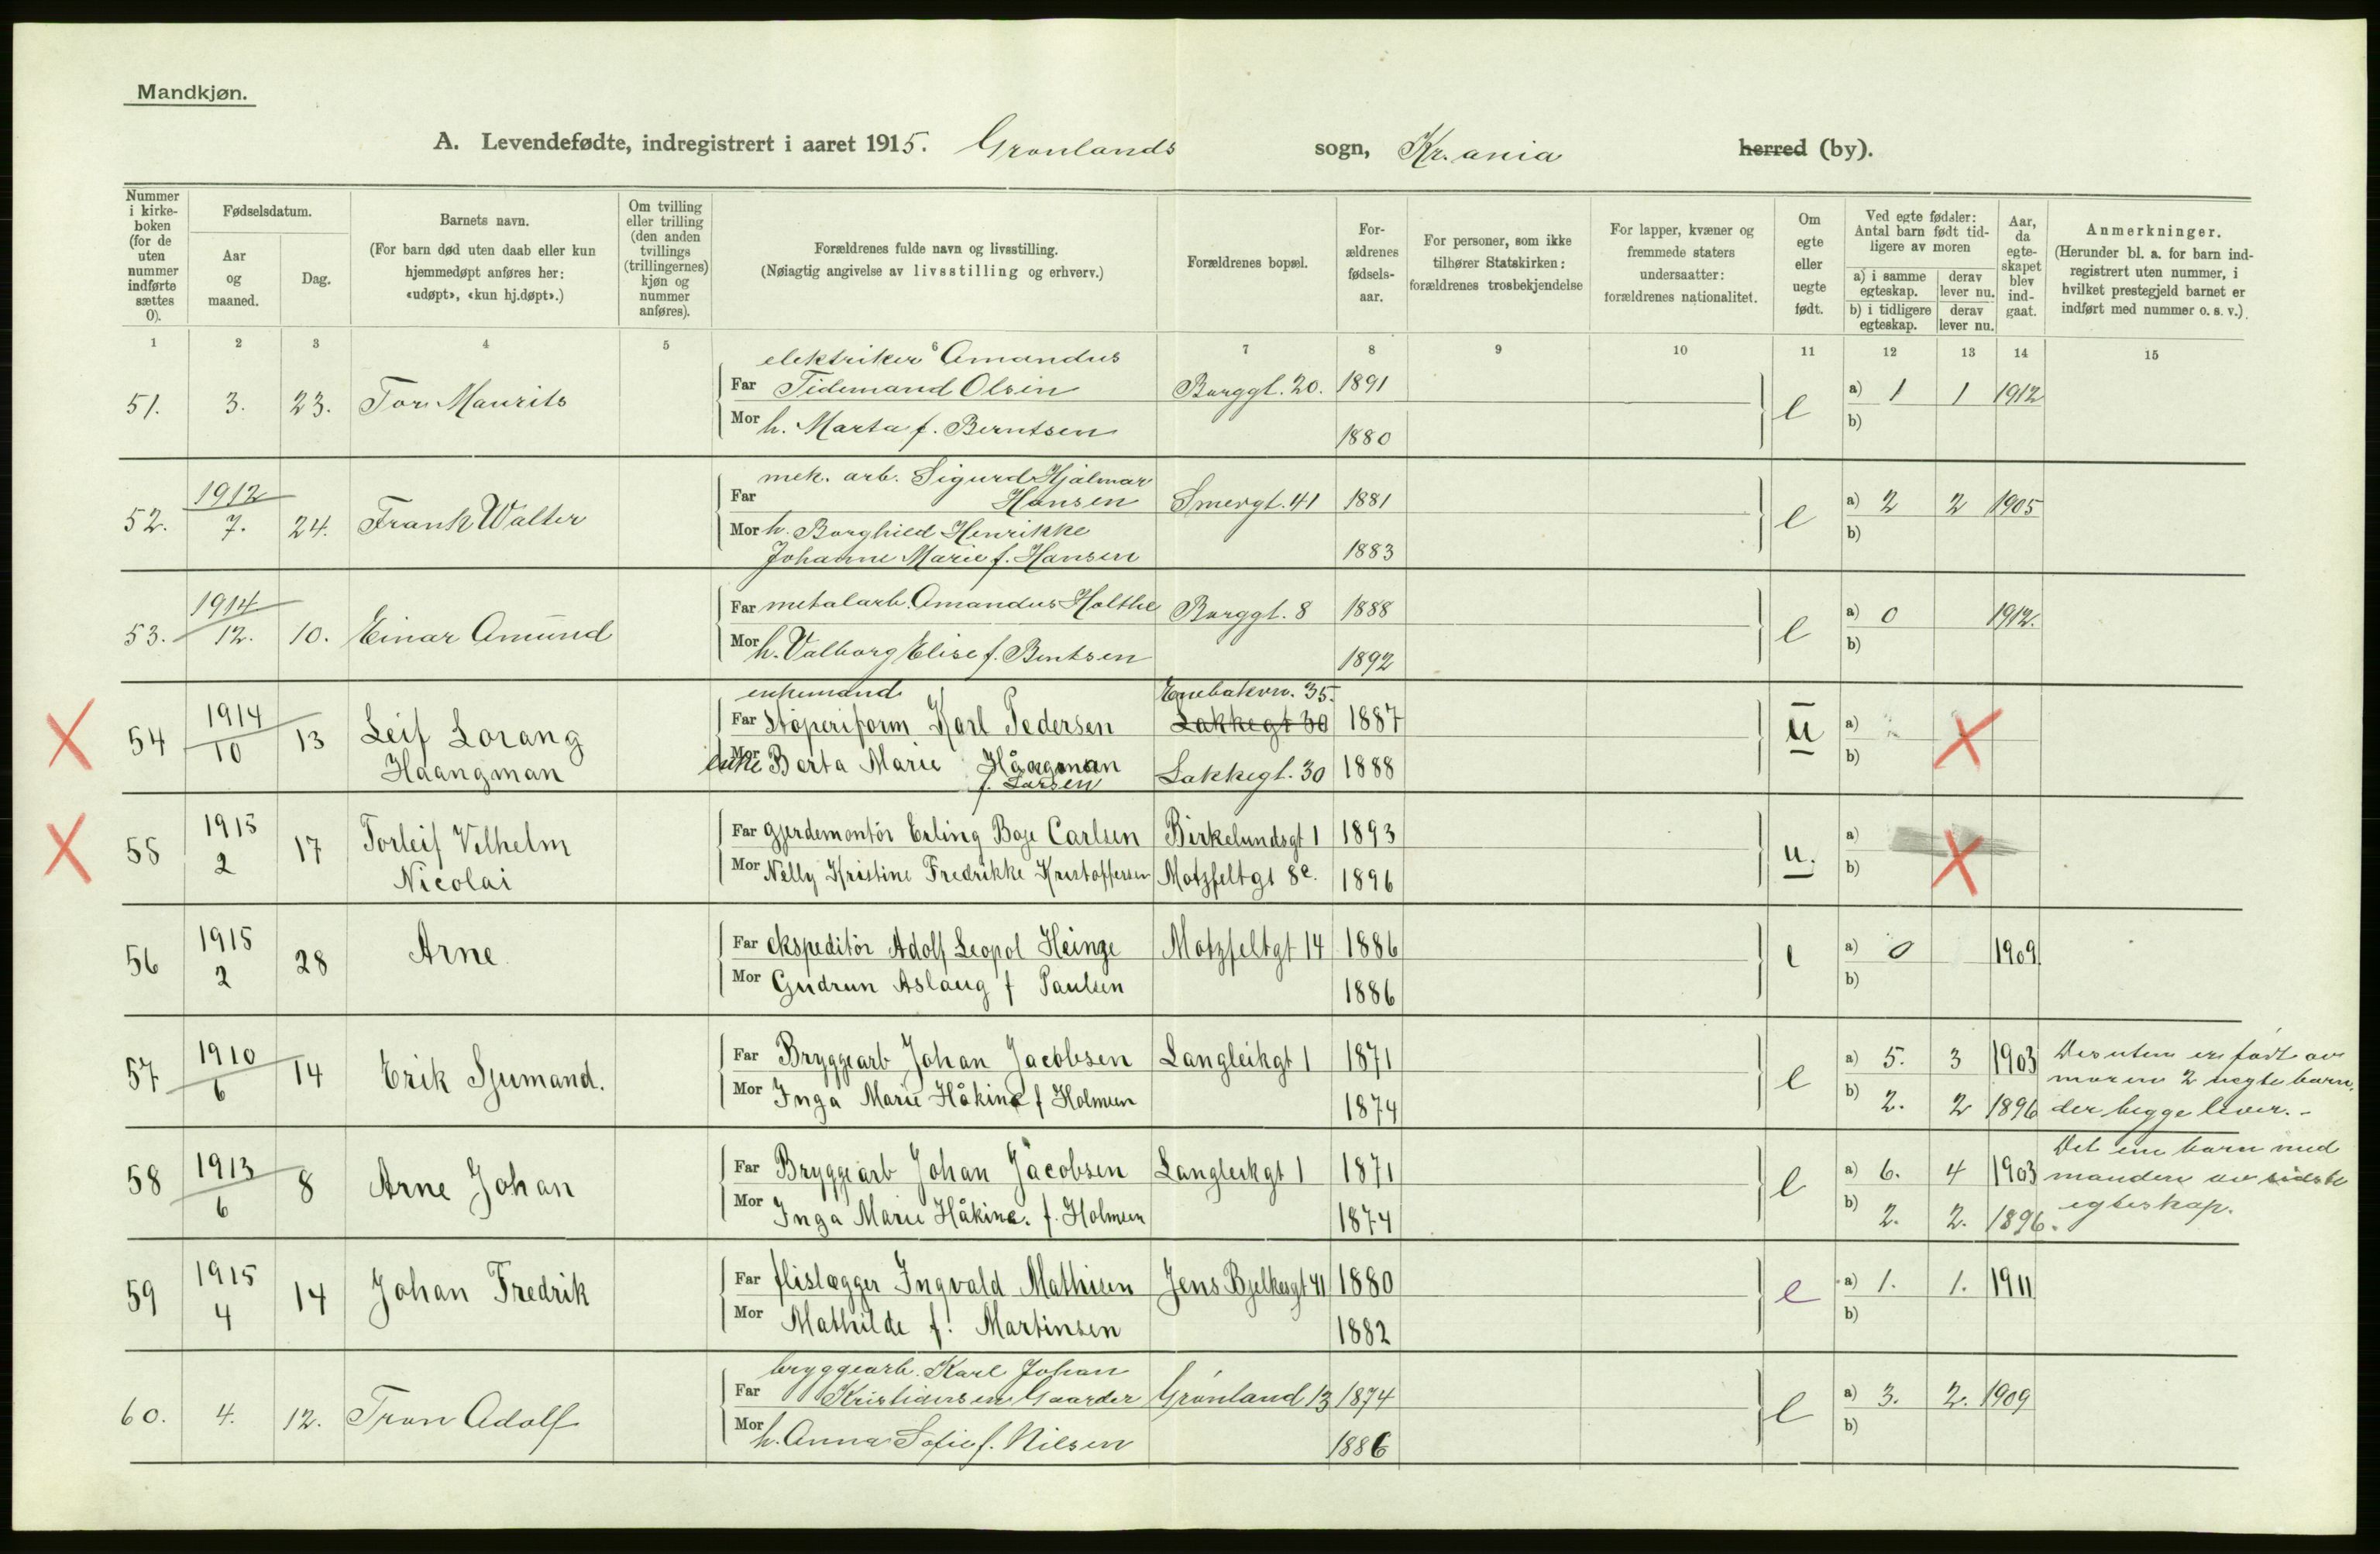 Mandkjøn.
A. Levendefødte, indregistrert i aaret 1915. Grønlands sogn, Kr.ania herred (by).
Nummer i kirkeboken (for de uten nummer indførte sættes 0).
Fødselsdatum.
Aar og maaned.
Dag.
Barnets navn.
(For barn død uten daab eller kun hjemmedøpt anføres her: «udøpt», «kun hj.døpt».)
Om tvilling eller trilling (den anden tvillings (trillingernes) kjøn og nummer anføres).
Forældrenes fulde navn og livsstilling.
(Nøiagtig angivelse av livsstilling og erhverv.)
Forældrenes bopæl.
Forældrenes fødselsaar.
For personer, som ikke tilhører Statskirken: forældrenes trosbekjendelse
For lapper, kvæner og fremmede staters undersaatter: forældrenes nationalitet.
Om egte eller uegte født.
Ved egte fødsler: Antal barn født tidligere av moren
a) i samme egteskap.
derav lever nu.
b) i tidligere egteskap.
derav lever nu.
Aar, da egteskapet blev indgaat.
Anmerkninger.
(Herunder bl. a. for barn indregistrert uten nummer, i hvilket prestegjeld barnet er indført med nummer o. s. v.)
1 2 3 4 5 6 7 8 9 10 11 12 13 14 15
elektriker Amandus
51. 3. 23. Tor Maurits Far Tidemand Olsen Borggt. 20. 1891 e a) 1 1 1912
Mor h. Marta f. Berntsen 1880 b)
mek. arb. Sigurd Hjalmar
1912
52. 7. 24. Frank Walter Far Hansen Smergt. 41 1881 e a) 2 2 1905
Mor h. Borghild Henrikke b)
Johanne Marie f. Hansen 1883
1914
53. 12. 10. Einar Amund Far metalarb. Amandus Holthe Borggt. 8 1888 e a) 0 1912.
Mor h. Valborg Elise f. Bentsen 1892 b)
enkemand Enebakvn. 35.
54 1914 10 13 Leif Lorang Far Støperiform Karl Pedersen Lakkegt 30 1887 u a)
Haangman enke Mor Berta Marie Hångman Lakkegt. 30 1888 b)
f. Larsen
55 1915 2 17 Torleif Vilhelm Far gjerdemontör Erling Boye Carlsen Birkelundsgt 1 1893 u. a)
Nicolai Mor Nelly Kristine Fredrikke Kristoffersen Motzfeltgt 8c. 1896 b)
56 1915 2 28 Arne Far ekspeditör Adolf Leopol Heinge Motzfeltgt 14 1886 e a) 0 1909
Mor Gudrun Aslaug f Paulsen 1886 b)
57 1910 6 14 Erik Sjumand. Far Bryggearb Johan Jacobsen Langleikgt 1 1871 e a) 5. 3 1903 Desuten er født av
moren 2 uegte barn,
Mor Inga Marie Håkine f Holmen 1874 b) 2. 2 1896 der begge lever. -
58 1913 6 8 Arne Johan Far Bryggearb Johan Jacobsen Langleikgt 1 1871 e a) 6. 4 1903 Det ene barn med
manden av sidste
Mor Inga Marie Håkine. f. Holmen 1874 b) 2. 2. 1896. egteskap.
59 1915 4 14 Johan Fredrik Far flislægger Ingvald Mathisen Jens Bjelkesgt 41 1880 e a) 1. 1. 1911
Mor Mathilde f. Martinsen 1882 b)
bryggearb. Karl Johan
60. 4. 12. Tron Adolf Far Kristiansen Gaarder Grønland 13 1874 e a) 3. 2. 1909
Mor h. Anna Sofie f. Nilsen 1886 b)